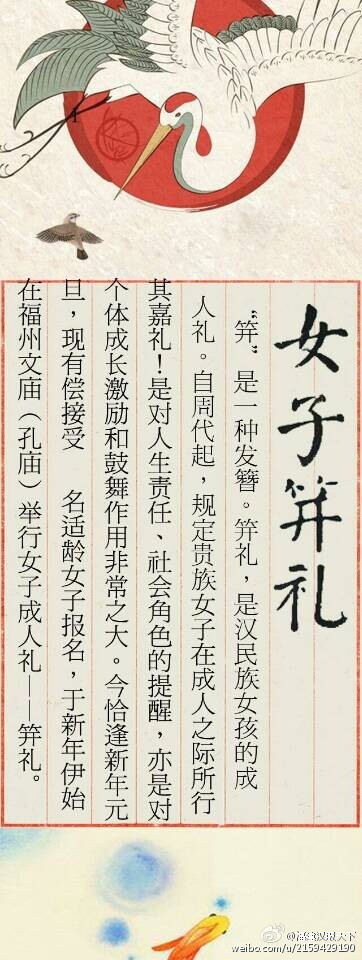 女子笄礼
“笄”是一种发簪。笄礼，是汉民族女孩的成
人礼。自周代起，规定贵族女子在成人之际所行
其嘉礼！是对人生责任、社会角色的提醒，亦是对
个体成长激励和鼓舞作用非常之大。今恰逢新年元
旦，现有偿接受　　名适龄女子报名，于新年伊始
在福州文庙（孔庙）举行女子成人礼——笄礼。
汉服天下
weibo.com/u/2159429190